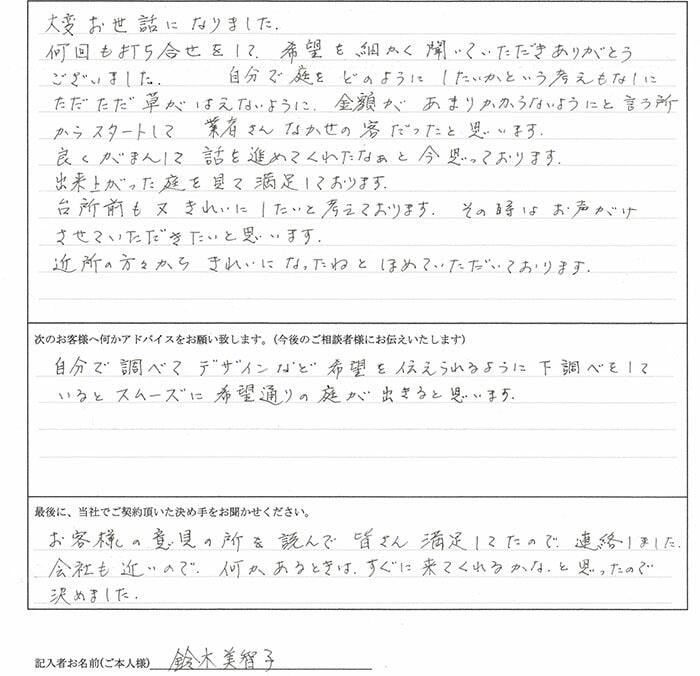 大変お世話になりました.
何回も打ち合せをして、希望を細かく聞いていただきありがとう
ございました. 自分で庭をどのようにしたいかという考えもなしに
ただただ草がはえないように、金額があまりかからないようにと言う所
からスタートして 業者さんなかせの客だったと思います.
良くがまんして話を進めてくれたなぁと今思っております.
出来上がった庭を見て満足しております.
台所前も又きれいにしたいと考えております. その時はお声がけ
させていただきたいと思います.
近所の方々からきれいになったねとほめていただいております.
次のお客様へ何かアドバイスをお願い致します。(今後のご相談者様にお伝えいたします)
自分で調べてデザインなど希望を伝えられるように下調べをして
いるとスムーズに希望通りの庭が出きると思います.
最後に、当社でご契約頂いた決め手をお聞かせください。
お客様の意見の所を読んで皆さん満足してたので、連絡しました.
会社も近いので、何かあるときは、すぐに来てくれるかな、と思ったので
決めました.
記入者お名前(ご本人様) 鈴木美智子